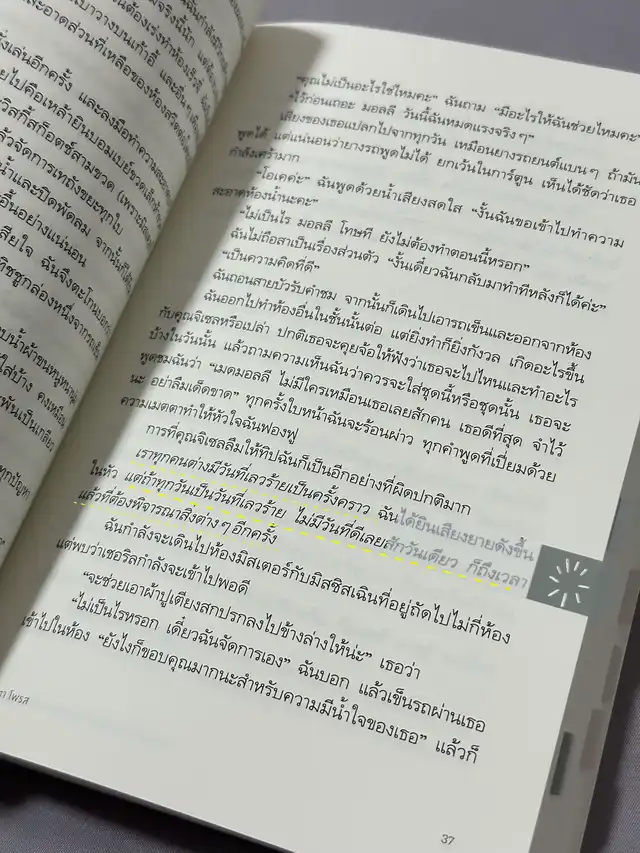 ต้องเร่งทำห้องเร็วสี่
เบาวางบนเก้าอี้ และยื่น
และอาดส่วนที่เหลือของห้องสวีต
เล่นอีกครั้ง และลงมือทำความสะอา
ไปคือเหล้ายินบอมเบย์ขวดเล็ก
วิสกี้สก็อตช์สามขวด (เพราะ
ัวจัดการเททิ้งขยะทุกใบ
น้ำและปิดพัดลม จากนั้น
อื้นอย่างแน่นอน
สียใจ ฉันจึงตะโกนบอก
ทิชชูกล่องหนึ่งจากรถเข็น
บน้ำผ้าขนหนูหนานุ่ม
ใส่บ้าง คงเหมือน
พันเป็นเกลียว
ทุกปัญหา
"คุณไม่เป็นอะไรใช่ไหมคะ" ฉันถาม "มีอะไรให้ฉันช่วยไหมคะ"
"ไว้ก่อนเถอะ มอลลี วันนี้ฉันหมดแรงจริงๆ"
เสียงของเธอแปลกไปจากทุกวัน เหมือนยางรถยนต์แบนๆ ถ้ามัน
พูดได้ แต่แน่นอนว่ายางรถพูดไม่ได้ ยกเว้นในการ์ตูน เห็นได้ชัดว่าเธอ
กำลังเศร้ามาก
"โอเคค่ะ" ฉันพูดด้วยน้ำเสียงสดใส "งั้นฉันขอเข้าไปทำความ
สะอาดห้องน้ำนะคะ"
"ไม่เป็นไร มอลลี โทษที ยังไม่ต้องทำตอนนี้หรอก"
ฉันไม่ถือสาเป็นเรื่องส่วนตัว "งั้นเดี๋ยวฉันกลับมาทำทีหลังก็ได้ค่ะ"
"เป็นความคิดที่ดี"
ฉันถอนสายบัวรับคำชม จากนั้นก็เดินไปเอารถเข็นและออกจากห้อง
ฉันออกไปทำห้องอื่นในชั้นนั้นต่อ แต่ยิ่งทำก็ยิ่งกังวล เกิดอะไรขึ้น
กับคุณจิเซลหรือเปล่า ปกติเธอจะคุยจ้อให้ฟังว่าเธอจะไปไหนและทำอะไร
บ้างในวันนั้น แล้วถามความเห็นฉันว่าควรจะใส่ชุดนี้หรือชุดนั้น เธอจะ
พูดชมฉันว่า "เมดมอลลี ไม่มีใครเหมือนเธอเลยสักคน เธอดีที่สุด จำไว้
นะ อย่าลืมเด็ดขาด" ทุกครั้งใบหน้าฉันจะร้อนผ่าว ทุกคำพูดที่เปี่ยมด้วย
ความเมตตาทำให้หัวใจฉันฟองฟู
การที่คุณจิเซลลืมให้ทิปฉันก็เป็นอีกอย่างที่ผิดปกติมาก
เราทุกคนต่างมีวันที่เลวร้ายเป็นครั้งคราว ฉันได้ยินเสียงยายดังขึ้น
ในหัว แต่ถ้าทุกวันเป็นวันที่เลวร้าย ไม่มีวันที่ดีเลยสักวันเดียว ก็ถึงเวลา
แล้วที่ต้องพิจารณาสิ่งต่างๆ อีกครั้ง
ฉันกำลังจะเดินไปห้องมิสเตอร์กับมิสซิสเฉินที่อยู่ถัดไปไม่กี่ห้อง
แต่พบว่าเชอริลกำลังจะเข้าไปพอดี
"จะช่วยเอาผ้าปูเตียงสกปรกลงไปข้างล่างให้น่ะ" เธอว่า
"ไม่เป็นไรหรอก เดี๋ยวฉันจัดการเอง" ฉันบอก แล้วเข็นรถผ่านเธอ
เข้าไปในห้อง "ยังไงก็ขอบคุณมากนะสำหรับความมีน้ำใจของเธอ" แล้วก็
โพรส
37